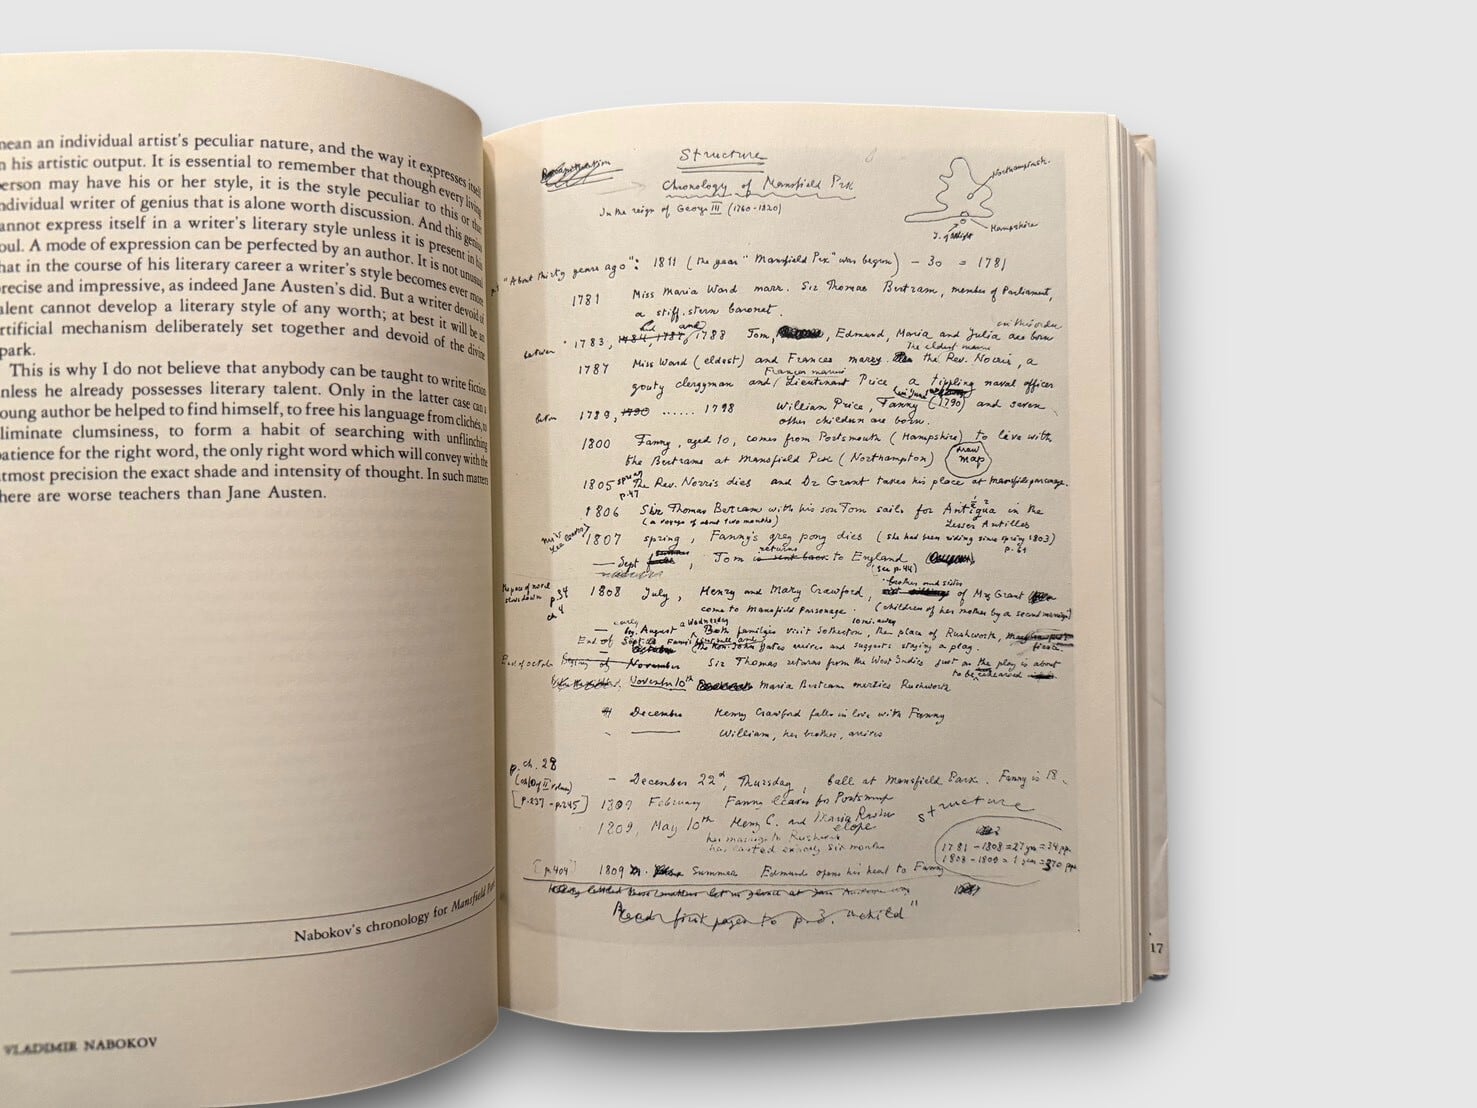 mean an individual artist's peculiar nature, and the way it expresses itself
n his artistic output. It is essential to remember that though every living
erson may have his or her style, it is the style peculiar to this or that
ndividual writer of genius that is alone worth discussion. And this genius
annot express itself in a writer's literary style unless it is present in his
oul. A mode of expression can be perfected by an author. It is not unusual
hat in the course of his literary career a writer's style becomes ever more
recise and impressive, as indeed Jane Austen's did. But a writer devoid of
alent cannot develop a literary style of any worth; at best it will be an
rtificial mechanism deliberately set together and devoid of the divine
park.
This is why I do not believe that anybody can be taught to write fiction
nless he already possesses literary talent. Only in the latter case can a
oung author be helped to find himself, to free his language from clichés, to
liminate clumsiness, to form a habit of searching with unflinching
atience for the right word, the only right word which will convey with the
tmost precision the exact shade and intensity of thought. In such matters
here are worse teachers than Jane Austen.
Nabokov's chronology for Mansfield Park
VLADIMIR NABOKOV
Structure
Chronology of Mansfield Park
In the reign of George III (1760-1820)
Northamptonsh.
Hampshire
I. of Wight
"About thirty years ago": 1811 (the year "Mansfield Park" was begun) - 30 = 1781
1781 Miss Maria Ward marr. Sir Thomas Bertram, member of Parliament,
a stiff, stern baronet.
in this order
between 1783, 1784, 1787, and 1788 Tom, Edmund, Maria and Julia are born
The eldest marries
1787 Miss Ward (eldest) and Frances marry. the Rev. Norris, a
Frances marries
gouty clergyman and Lieutenant Price, a tippling naval officer
between 1789, 1790 ...... 1798 William Price, Fanny (1790) and seven
other children are born.
1800 Fanny, aged 10, comes from Portsmouth (Hampshire) to live with
the Bertrams at Mansfield Park (Northampton) draw map
1805 spring The Rev. Norris dies and Dr Grant takes his place at Mansfield parsonage.
p.47
1806 Sir Thomas Bertram with his son Tom sails for Antigua in the
(a voyage of about two months) Lesser Antilles
1807 spring, Fanny's grey pony dies (she had been riding since spring 1803)
p. 61
— Sept, Tom returns to England
(see p.44)
the pace of novel slows down p.34 ch 4
brother and sister
1808 July, Henry and Mary Crawford, of Mrs Grant
come to Mansfield Parsonage. (children of her mother by a second marriage)
— early August a Wednesday Both families visit Sotherton, the place of Rushworth,
10 mi. away
End of Sept The Hon. John Yates arrives and suggests staging a play.
End of october November Sir Thomas returns from the West Indies just as the play is about
to be rehearsed
November 10th Maria Bertram marries Rushworth
December Henry Crawford falls in love with Fanny
William, her brother, arrives
p. ch. 28
[p.237 - p.245]
- December 22d, Thursday, ball at Mansfield Park. Fanny is 18
1809 February Fanny leaves for Portsmouth
1809, May 10th Henry C. and Maria Rushw elope
her marriage to Rushworth
has lasted exactly six months
structure
1781 - 1808 = 27 yrs = 34 pp.
1808 - 1809 = 1 year = 370 pps
[p.404] 1809 Summer Edmund opens his heart to Fanny
Read first pages to p. 3. "a child"
17